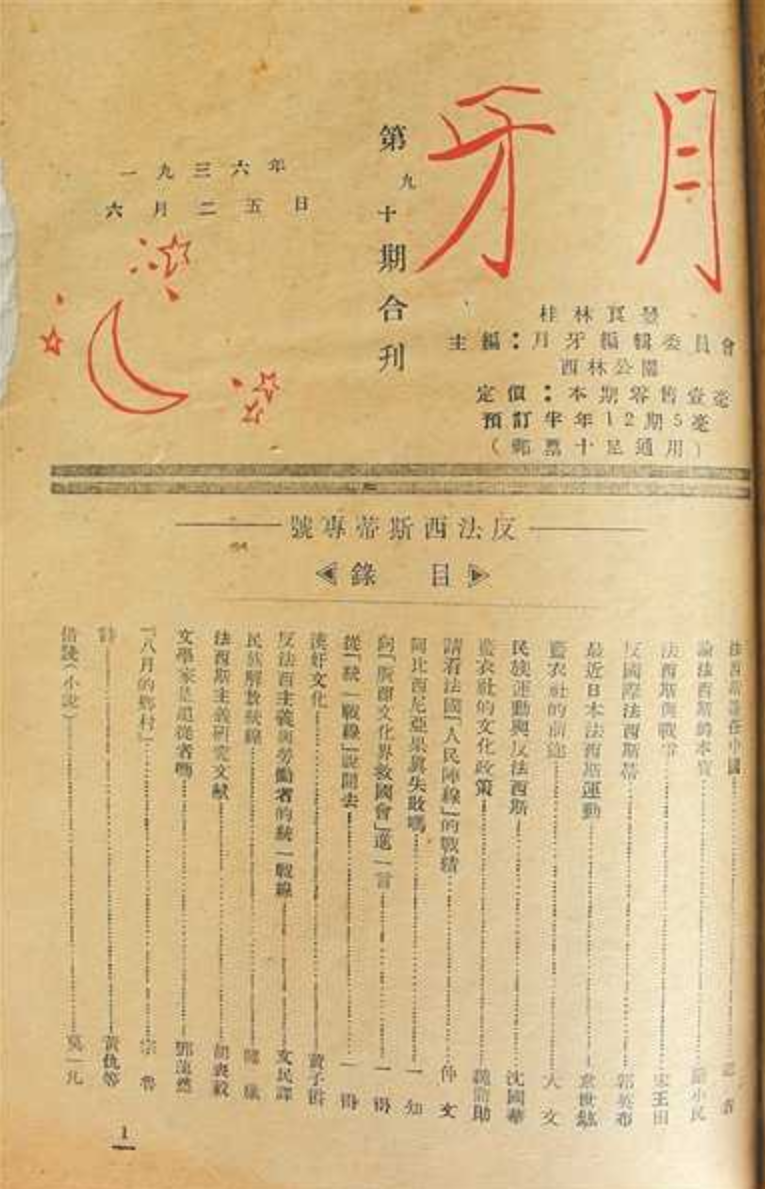 月牙
第九十期合刊
一九三六年
六月二五日
桂林
主編：月牙編輯委員會
西林公園
定價：本期零售壹毫
預訂半年12期5毫
（郵票十足通用）
反法西斯蒂專號
目錄
法西斯蒂在中國
論法西斯的本質 小民
法西斯與戰爭 宋王田
反國際法西斯蒂 郭英布
最近日本法西斯運動 世
藍衣社的前途 大文
民族運動與反法西斯 沈國華
藍衣社的文化政策 助
請看法國「人民陣線」的戰績 仲文
阿比西尼亞果真失敗嗎 一知
向「廣西文化界救國會」進一言 一得
從「統一戰線」說開去 一得
漢奸文化 黃子
反法西主義與勞働者的統一戰線 文民譯
民族解放統線
法西斯主義研究文献 胡
文學家是追從者嗎 鄧
「八月的鄉村」 宗魯
詩 黃仇等
借錢（小說） 莫一凡
1